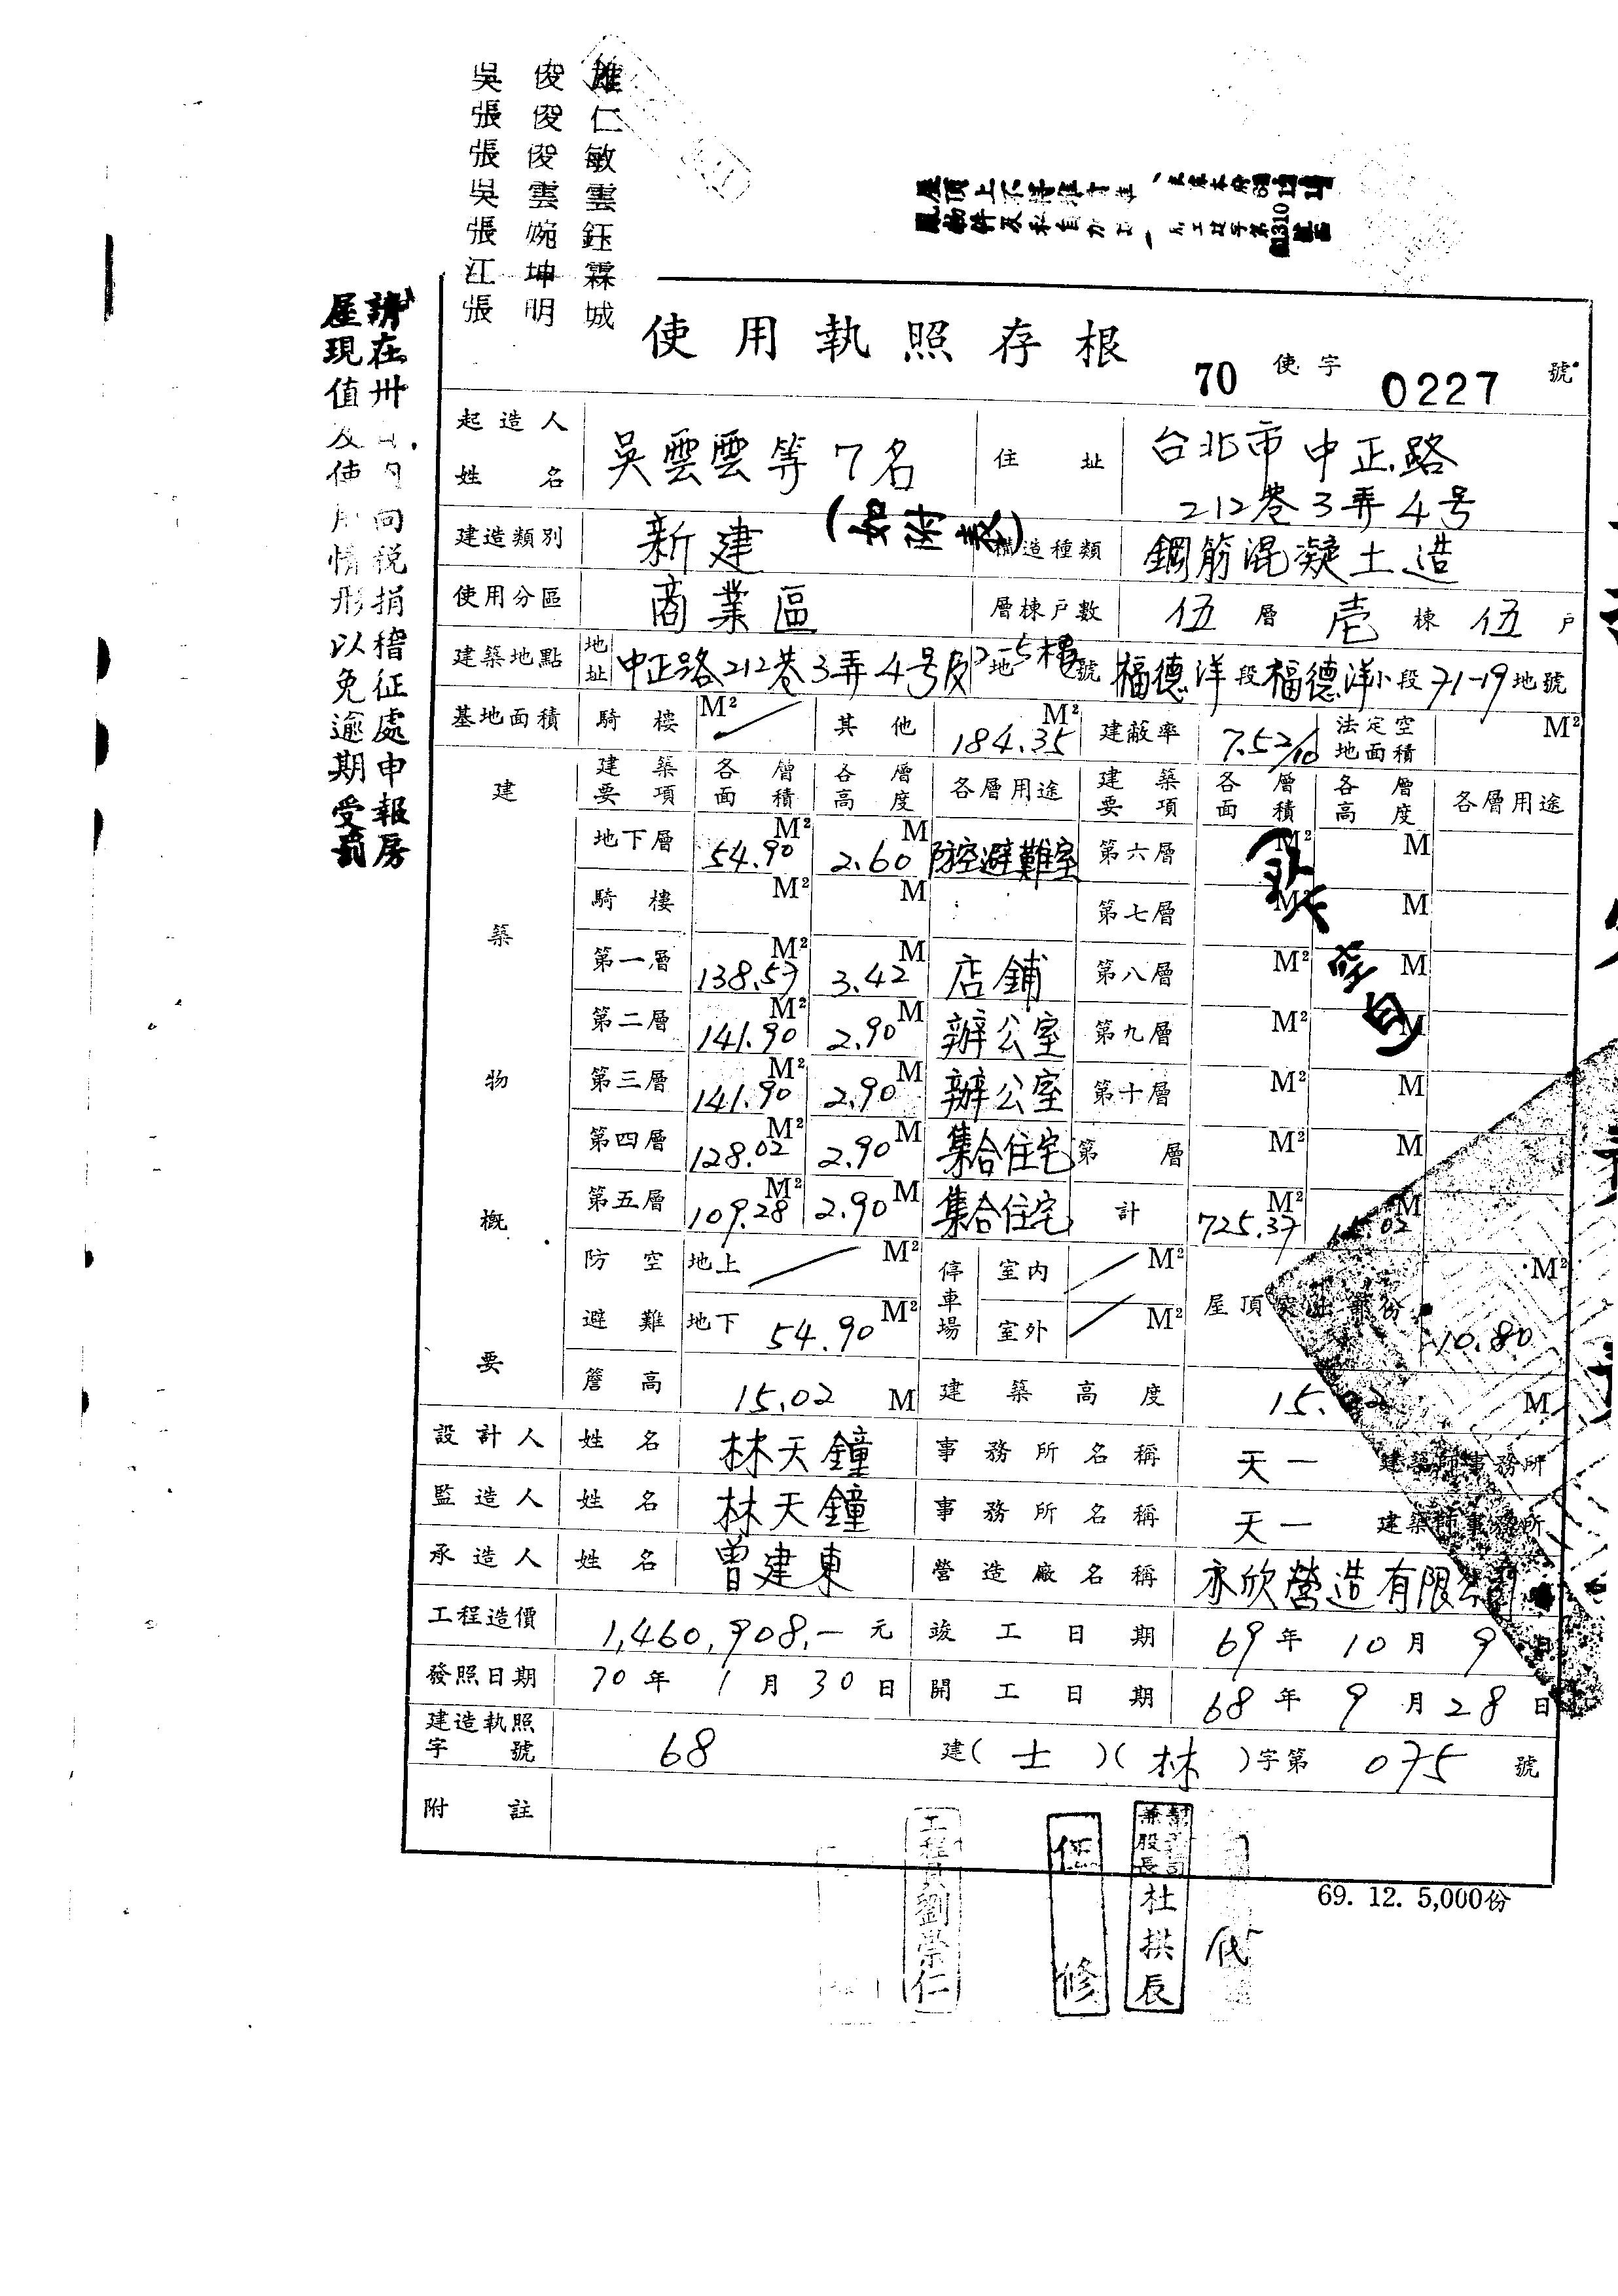 吳俊雄
張俊仁
張俊敏
吳雲雲
張婉鈺
江坤霖
張明城
請在卅日內向稅捐稽征處申報房
屋現值及使用情形以免逾期受罰
使用執照存根
70 使字 0227 號
起造人姓名 吳雲雲等7名 (如附表) 住址 台北市中正路212巷3弄4号
建造類別 新建 構造種類 鋼筋混凝土造
使用分區 商業區 層棟戶數 伍層壱棟伍戶
建築地點 地址 中正路212巷3弄4号及2-5樓 地號 福德洋段福德洋小段71-19地號
基地面積 騎樓 M² 其他 184.35 M² 建蔽率 7.52/10 法定空地面積 M²
建築物概要
建築要項 各層面積 各層高度 各層用途 建築要項 各層面積 各層高度 各層用途
地下層 54.90 M² 2.60 M 防空避難室 第六層 M² M
騎樓 M² M 第七層 M² M
第一層 138.57 M² 3.42 M 店鋪 第八層 M² M
第二層 141.90 M² 2.90 M 辦公室 第九層 M² M
第三層 141.90 M² 2.90 M 辦公室 第十層 M² M
第四層 128.02 M² 2.90 M 集合住宅 第 層 M² M
第五層 109.28 M² 2.90 M 集合住宅 計 725.37 M² 15.02 M
空白
防空避難 地上 M² 停車場 室內 M² 屋頂突出部份 10.80 M²
地下 54.90 M² 室外 M²
簷高 15.02 M 建築高度 15.02 M
設計人 姓名 林天鐘 事務所名稱 天一 建築師事務所
監造人 姓名 林天鐘 事務所名稱 天一 建築師事務所
承造人 姓名 曾建東 營造廠名稱 亦欣營造有限公司
工程造價 1,460,908.— 元 竣工日期 69年10月9日
發照日期 70年1月30日 開工日期 68年9月28日
建造執照字號 68 建(士)(林)字第075號
附註
工程員劉崇仁
任修
兼股長 杜拱辰
代
69. 12. 5,000份